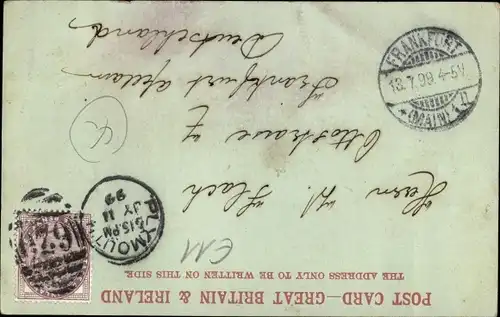 POST CARD—GREAT BRITAIN & IRELAND
THE ADDRESS ONLY TO BE WRITTEN ON THIS SIDE.
Herrn W. Flach
Ottostrasse 7
Frankfurt
Deutschland
PLYMOUTH
6 15 PM
JY 11
99
FRANKFURT
13.7.99 4-5N.
* (MAIN) 1 n